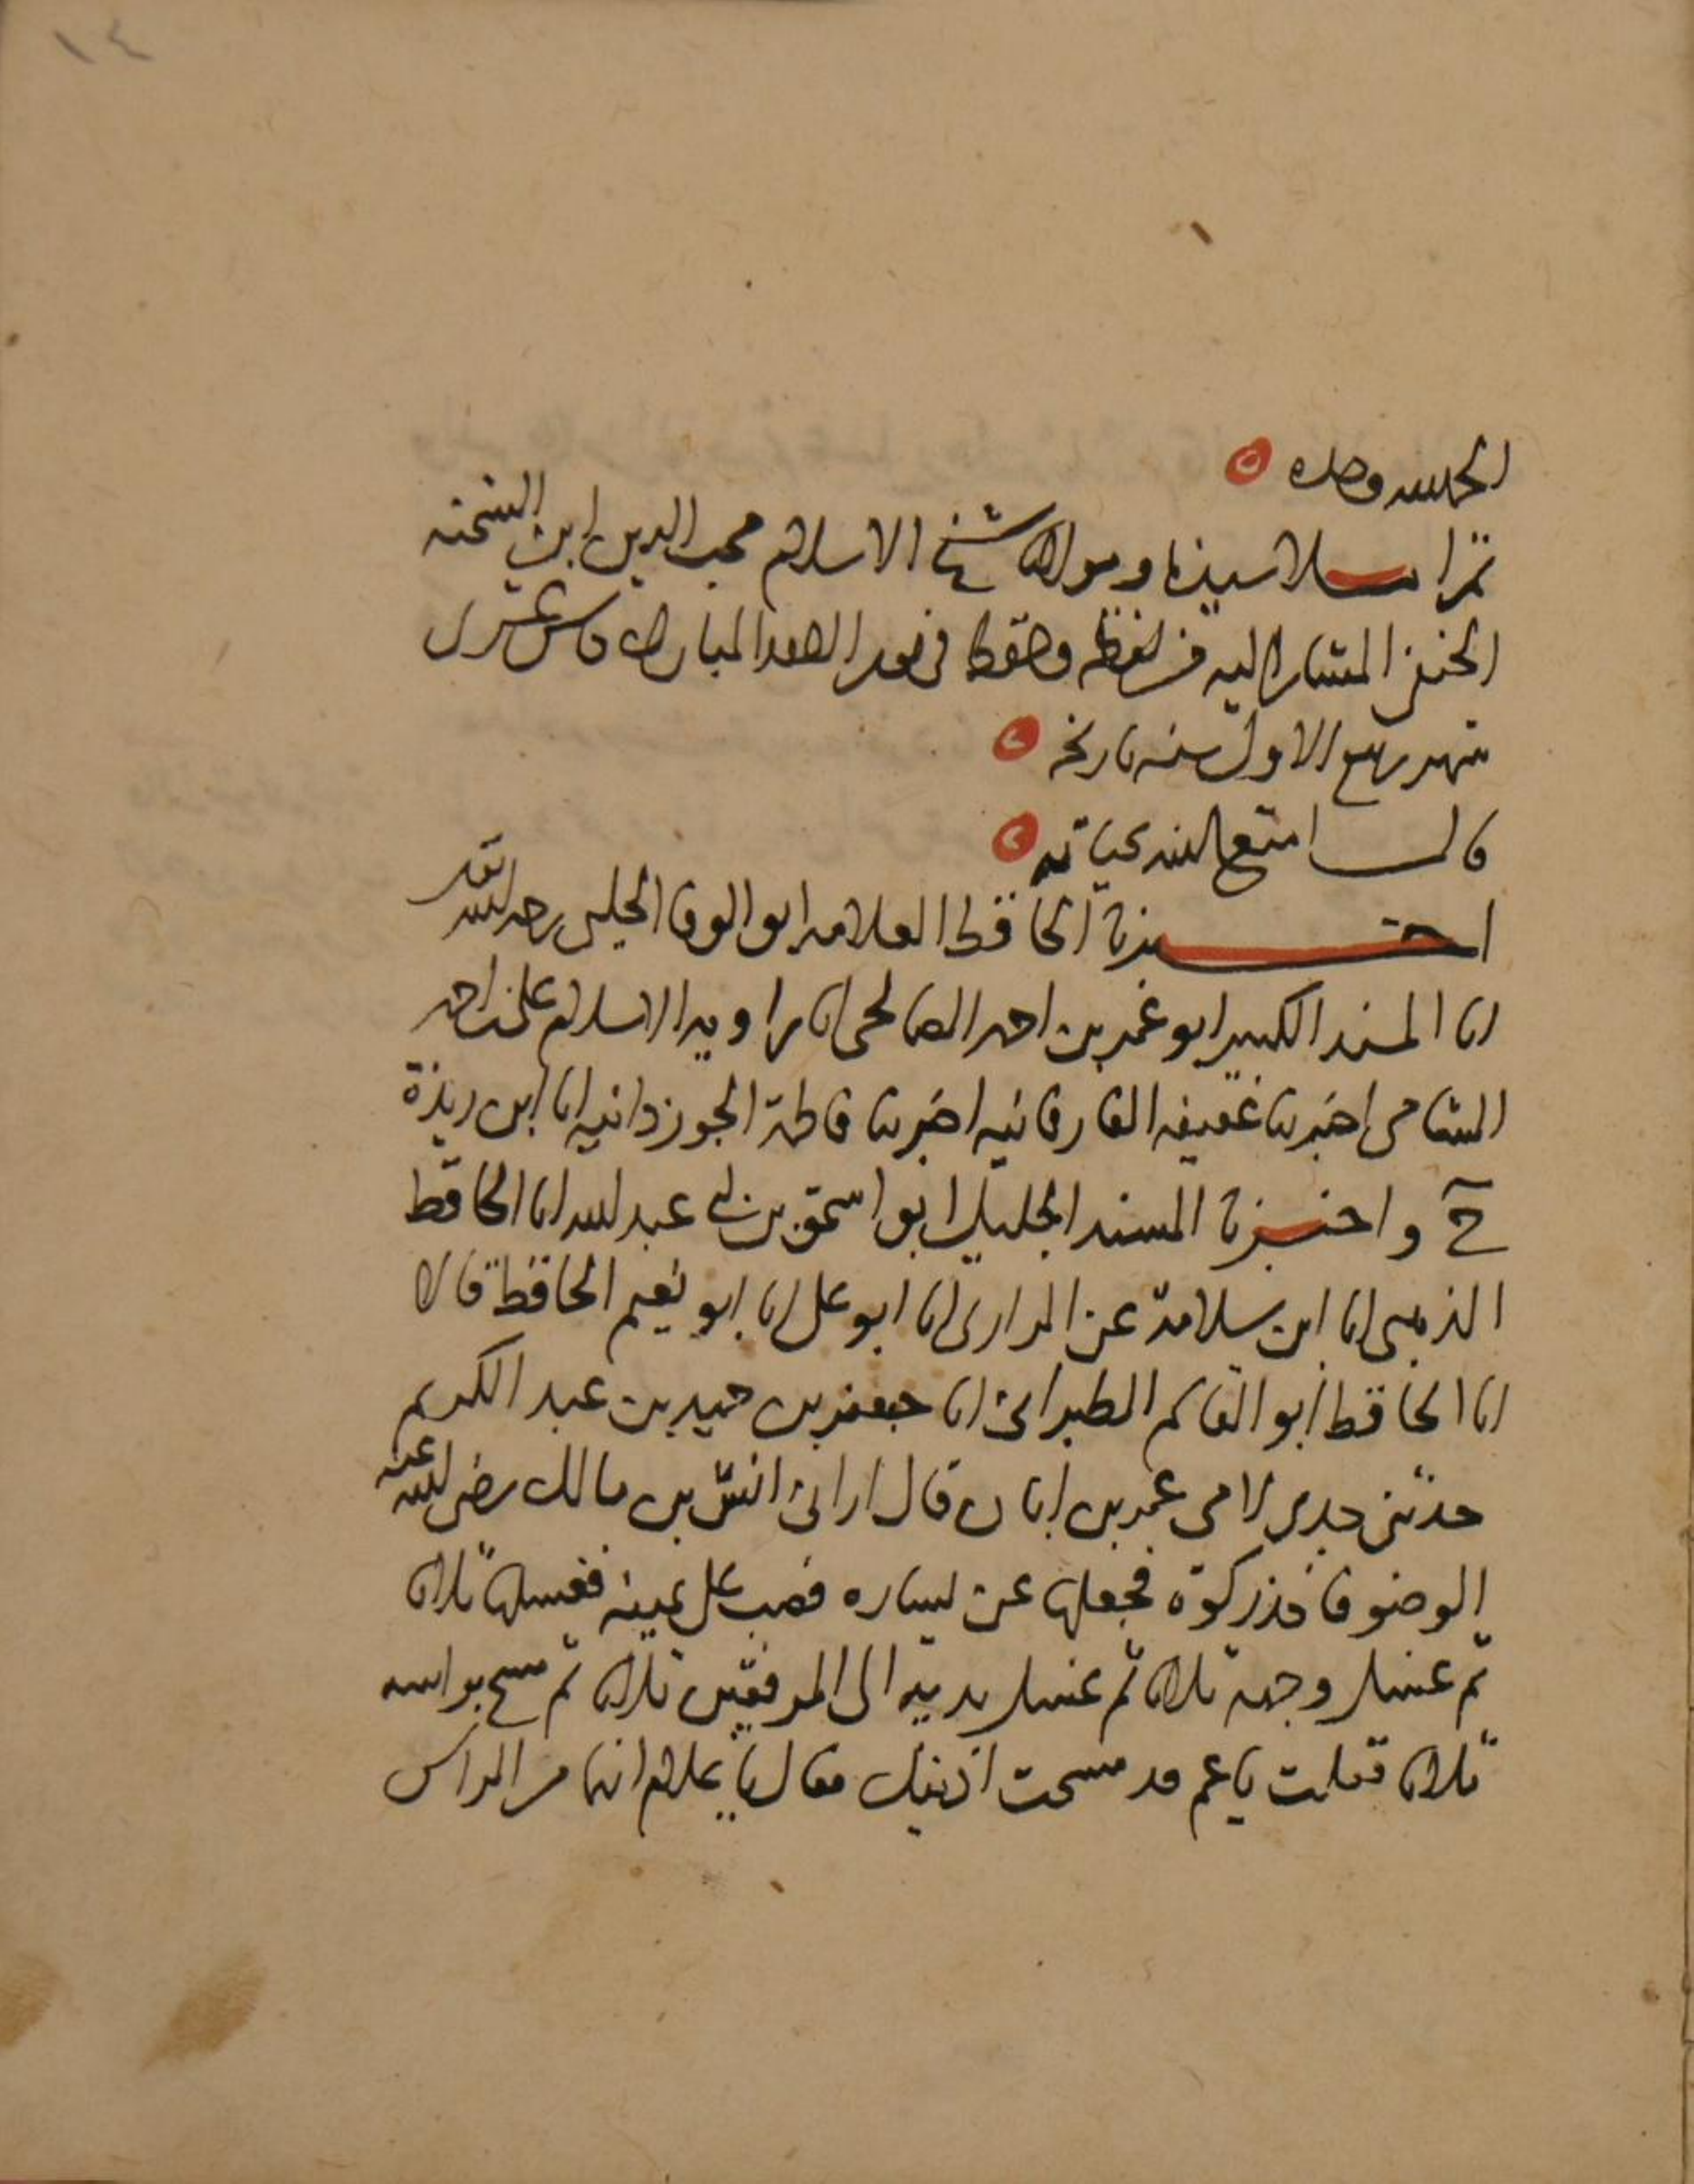 ١٤
الحمد لله وحده
ثم املا سيدنا ومولانا شيخ الاسلام محب الدين ابن الشحنه
الحنفي المشار اليه من لفظه وحفظه في المبارك عشر
شهر ربيع الاول سنه تاريخه
قال امتع الله بحياته
اخبرنا الحافظ العلامه ابو الوفا الحلبي رحمه الله تعالى
انا المسند الكبير ابو عمر بن احمد الصالحي انا راويه الاسلام علي بن احمد
اخبرتنا عفيفه الفارفانيه اخبرتنا فاطمة الجوزدانيه انا ابن ريذة
ح واخبرنا المسند الجليل ابو اسحق بن ابي عبد الله انا الحافظ
الذهبي انا ابن سلامة عن الداراني انا ابو علي انا ابو نعيم الحافظ قالا
انا الحافظ ابو القاسم الطبراني انا جعفر بن حميد بن عبد الكريم
حدثني جدي لامي عمر بن ابان قال اراني انس بن مالك رضي الله عنه
الوضو فاخذ ركوة فجعلها عن يساره فصب على يمينه فغسلها ثلاثا
ثم غسل وجهه ثلاثا ثم غسل يديه الى المرفقين ثلاثا ثم مسح براسه
ثلاثا فقلت يا عم قد مسحت اذنيك فقال يا غلام انهما من الراس